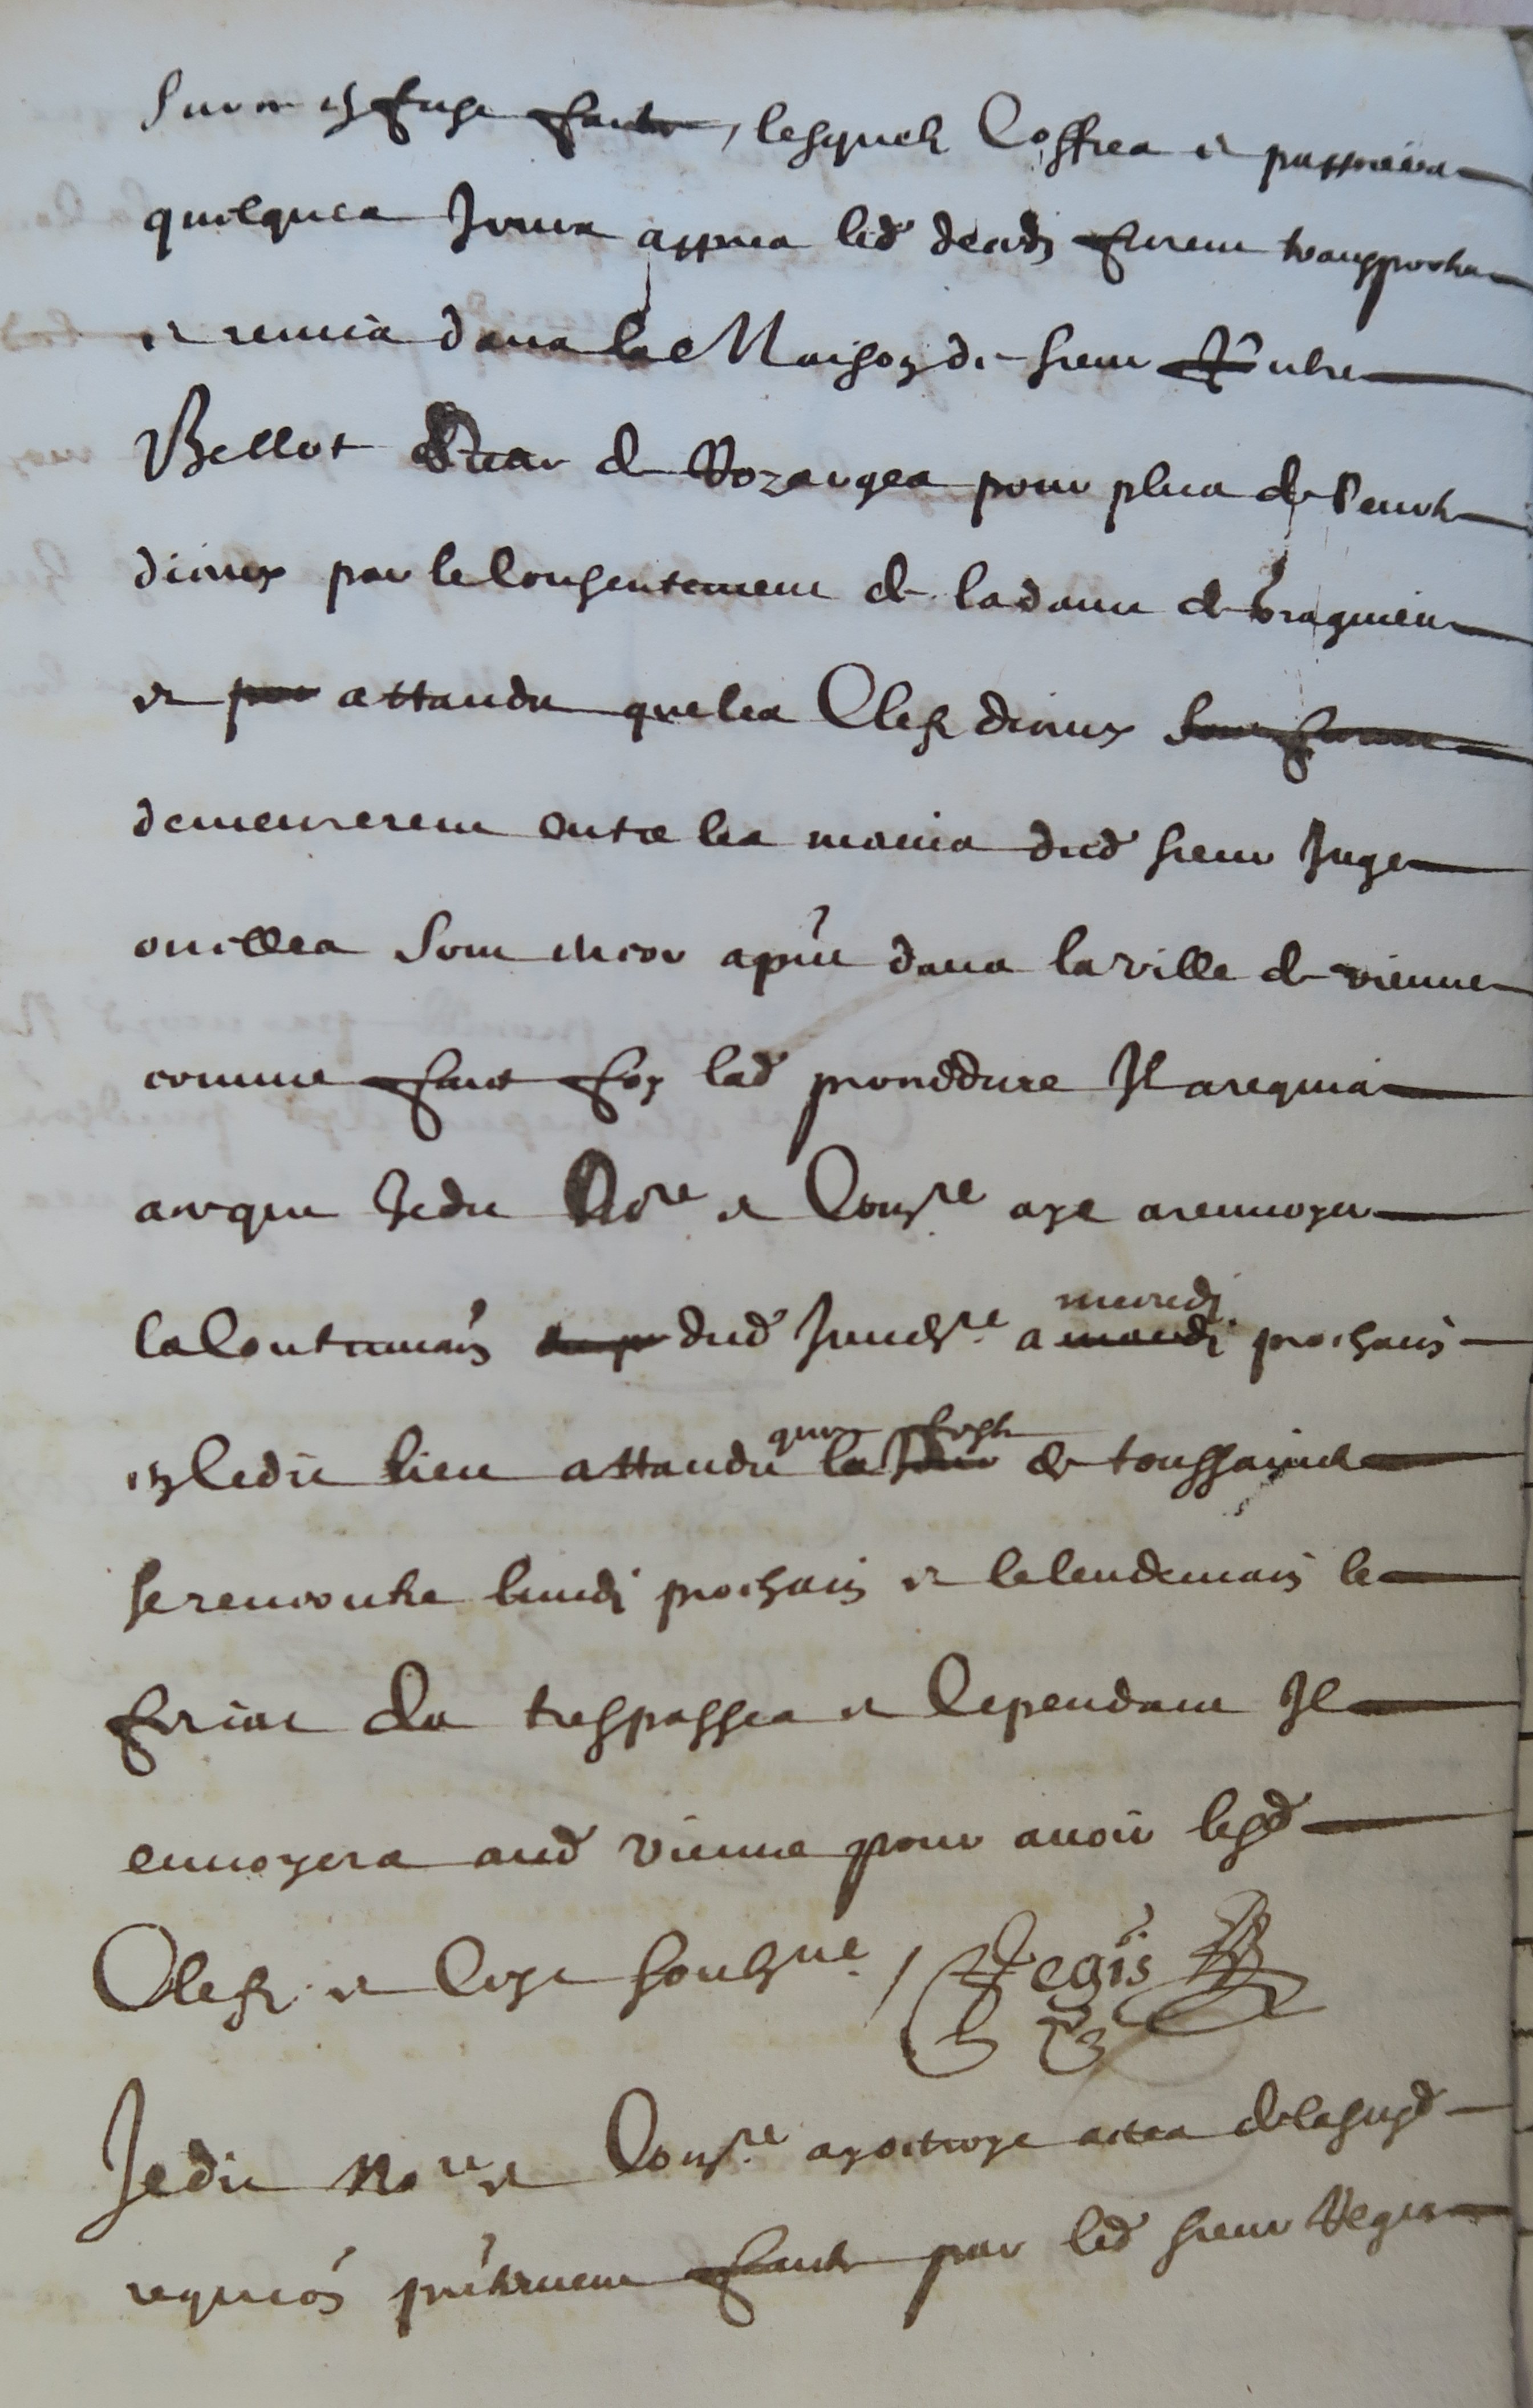 lesquelz Coffres et pappiers
quelques Jours appres led deces furent transportes
et remis dans la Maison de sieur
Bellot de Rozanges pour plus de seurte
diceux par le consentement de la dame de
et attandu que les Clefz diceux
demeurerent entre les mains dud sieur Juge
ou elles sont encor apnt dans la ville de vienne
comme faict foy lad proceddure Il a requis
avque Jedit Nore et Comre aye a renvoyer
la Continuaon dud Inventre a mercredi prochain
en ledit lieu attandu que feste de toussainctz
se rencontre lundi prochain et le lendemain le
des trespasses et Cependant Il
envoyera aud vienne pour avoir lesd
Clefz et Cest soubzne / Regis
Jedit Nore et Comre ay octroye actes de la susd
requion pntement faicte par led sieur Regis